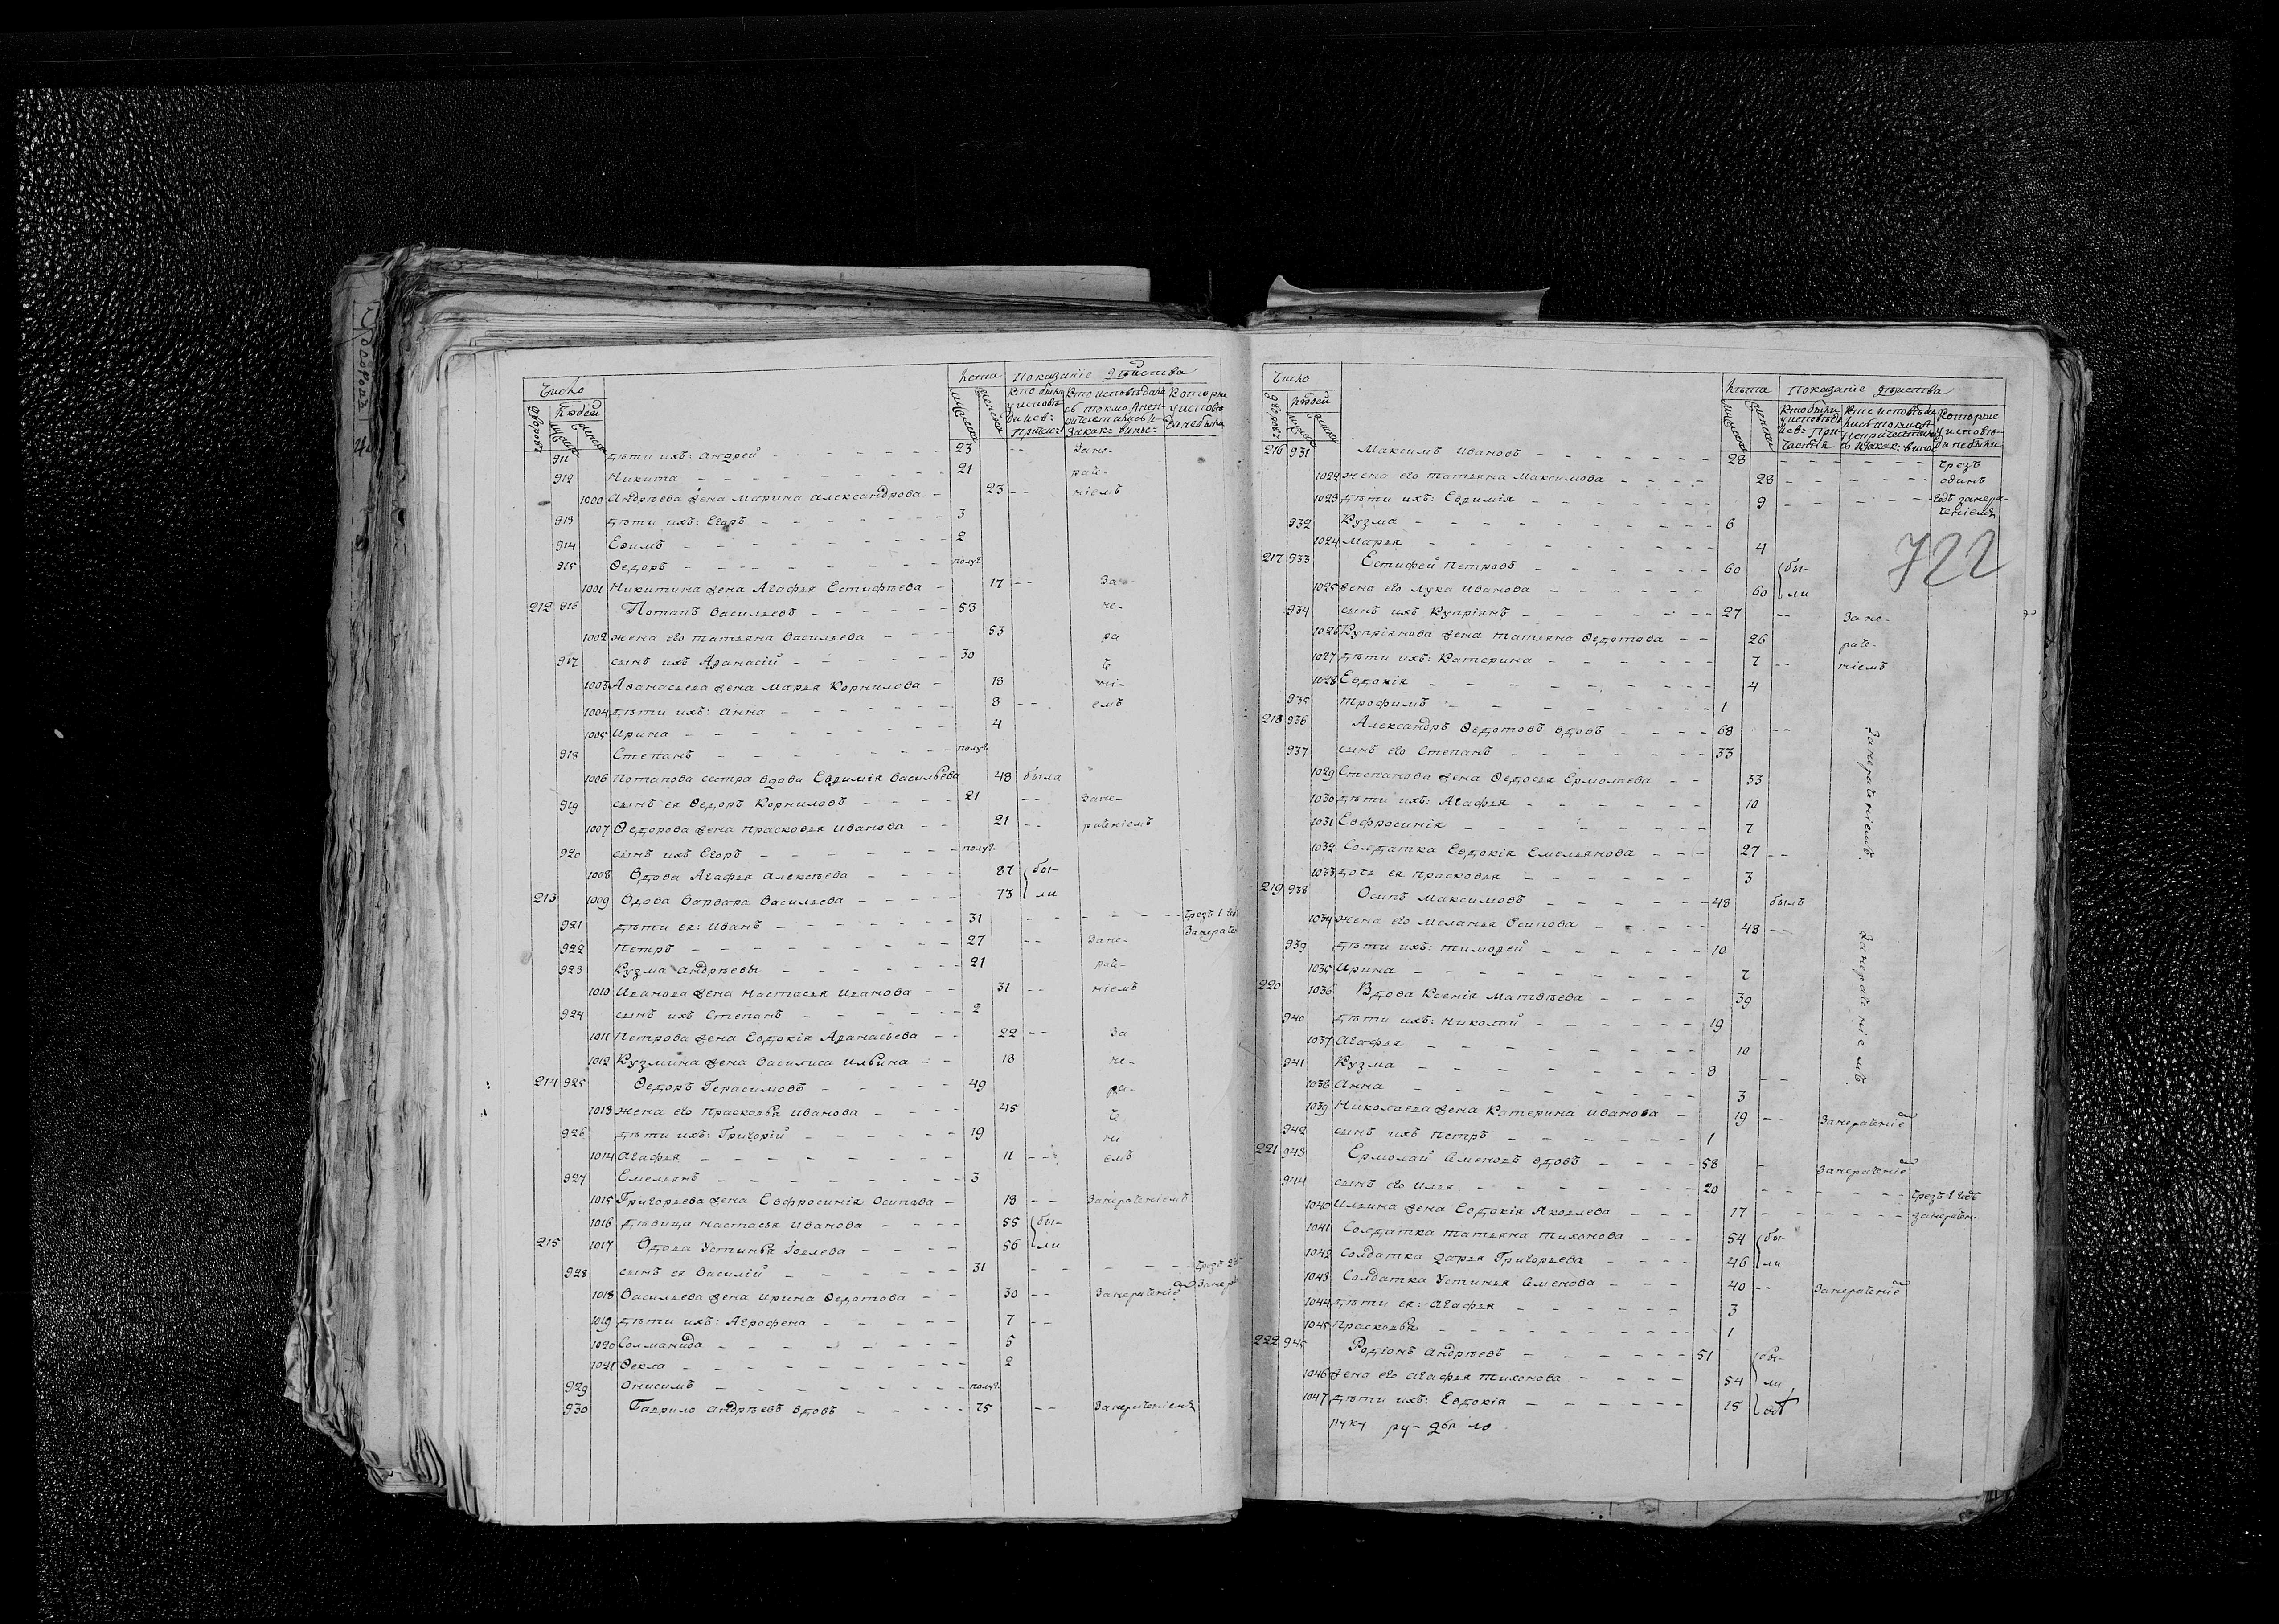 Число
Лѣта Показаніе дѣйства
Дворовъ
Людей
911 дѣти ихъ: Андрей 23 Зане-
912 Никита 21 раче-
1000 Андрѣева жена Марина Александрова 23 ніемъ
913 дѣти ихъ: Егоръ 3
914 Ефимъ 2
915 Ѳедоръ полуг.
1001 Никитина жена Агафья Естифѣева 17 За-
212 916 Потапъ Васильевъ 53 не-
1002 жена его Татьяна Васильева 53 ра
917 сынъ ихъ Афанасій 30 че
1003 Афанасьева жена Марья Корнилова 18 ні-
1004 дѣти ихъ: Анна 8 емъ
1005 Ирина 4
918 Степанъ полуг.
1006 Потапова сестра вдова Евфимія Васильева 48 была
919 сынъ ея Ѳедоръ Корниловъ 21 Зане-
1007 Ѳедорова жена Прасковья Иванова 21 раченіемъ
920 сынъ ихъ Егоръ полуг.
1008 Вдова Агафья Алексѣева 87 бы-
213 1009 Вдова Варвара Васильева 73 ли
921 дѣти ея: Иванъ 31 чрезъ 1
922 Петръ 27 Зане-
923 Кузма Андрѣевы 21 раче-
1010 Иванова жена Настасья Иванова 31 ніемъ
924 сынъ ихъ Степанъ 2
1011 Петрова жена Евдокія Афанасьева 22 За
1012 Кузмина жена Василиса Ильина 18 не-
214 925 Ѳедоръ Герасимовъ 49 ра-
1013 жена его Прасковья Иванова 45 че
926 дѣти ихъ: Григорій 19 ні
1014 Агафья 11 емъ
927 Емельянъ 3
1015 Григорьева жена Евфросинія Осипова 18 Занераченіемъ
1016 дѣвица Настасья Иванова 55 бы-
215 1017 Вдова Устинья Іовлева 56 ли
928 сынъ ея Василій 31
1018 Васильева жена Ирина Ѳедотова 30 Занераченіе
1019 дѣти ихъ: Агрофена 7
1020 Солманида 5
1021 Ѳекла 2
929 Онисимъ полуг.
930 Гаврило Андрѣевъ вдовъ 75 Занераченіемъ
Число
Лѣта Показаніе дѣиства
Дворовъ
Людей
216 931 Максимъ Ивановъ 28 чрезъ
1022 жена его Татьяна Максимова 28 одинъ
1023 дѣти ихъ: Евфимія 9 годъ занера-
ченіемъ
932 Кузма 6
1024 Марья 4
722
217 933 Естифей Петровъ 60 бы-
1025 жена его Лука Иванова 60 ли
934 сынъ ихъ Купріянъ 27 Зане-
1026 Купріянова жена Татьяна Ѳедотова 26 раче-
1027 дѣти ихъ: Катерина 7 ніемъ
1028 Евдокія 4
935 Трофимъ 1
218 936 Александръ Ѳедотовъ вдовъ 68
937 сынъ его Степанъ 33
Занераченіемъ
1029 Степанова жена Ѳедосья Ермолаева 33
1030 дѣти ихъ: Агафья 10
1031 Евфросинія 7
1032 Солдатка Евдокія Емельянова 27
1033 дочь ея Прасковья 3
219 938 Осипъ Максимовъ 48 былъ
1034 жена его Меланья Осипова 48
939 дѣти ихъ: Тимофей 10
Занераченіемъ
1035 Ирина 7
220 1036 Вдова Ксенія Матвѣева 39
940 дѣти ихъ: Николай 19
1037 Агафья 10
941 Кузма 8
1038 Анна 3
1039 Николаева жена Катерина Иванова 19 Занераченіе
942 сынъ ихъ Петръ 1
221 943 Ермолай Семеновъ вдовъ 58 Занераченіе
944 сынъ его Илья 20 чрезъ 1 годъ
1040 Ильина жена Евдокія Яковлева 17 занерачен.
1041 Солдатка Татьяна Тихонова 54 бы-
1042 Солдатка Дарья Григорьева 46 ли
1043 Солдатка Устинья Семенова 40 Занераченіе
1044 дѣти ея: Агафья 3
1045 Прасковья 1
222 945 Родіонъ Андрѣевъ 51 бы-
1046 жена его Агафья Тихонова 54 ли
1047 дѣти ихъ: Евдокія 15
руку